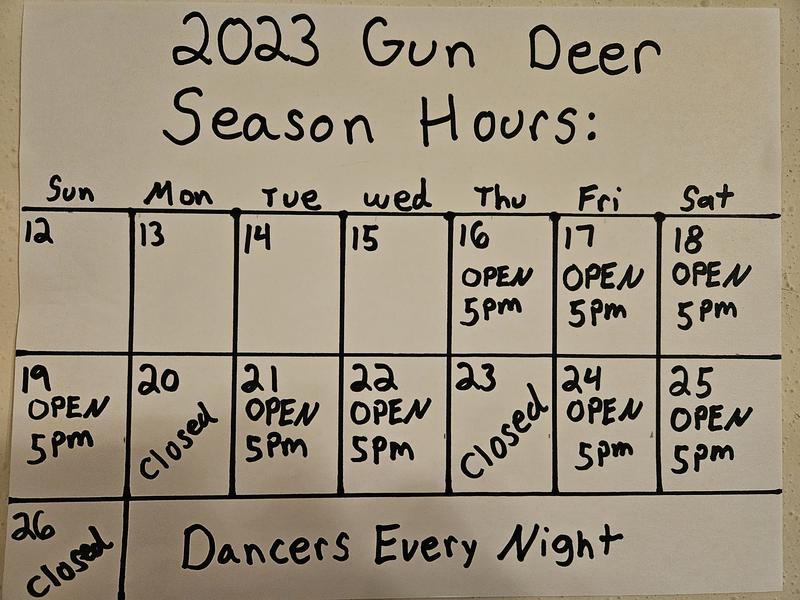 2023 Gun Deer
Season Hours:
Sun Mon Tue wed Thu Fri Sat
12 13 14 15 16 17 18
OPEN OPEN OPEN
5pm 5pm 5pm
19 20 21 22 23 24 25
OPEN Closed OPEN OPEN Closed OPEN OPEN
5pm 5pm 5pm 5pm 5pm
26 Dancers Every Night
Closed